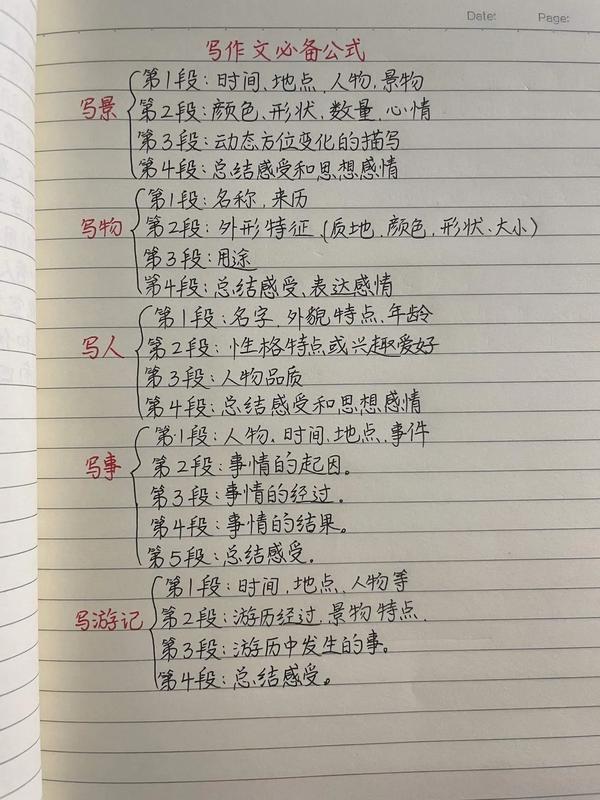 Date: Page:
写作文必备公式
写景
第1段：时间、地点、人物，景物
第2段：颜色、形状、数量、心情
第3段：动态方位变化的描写
第4段：总结感受和思想感情
写物
第1段：名称，来历
第2段：外形特征（质地、颜色，形状、大小）
第3段：用途
第4段：总结感受、表达感情
写人
第1段：名字，外貌特点、年龄
第2段：性格特点或兴趣爱好
第3段：人物品质
第4段：总结感受和思想感情
写事
第1段：人物，时间、地点、事件
第2段：事情的起因。
第3段：事情的经过．
第4段：事情的结果。
第5段：总结感受．
写游记
第1段：时间、地点、人物等
第2段：游历经过，景物特点．
第3段：游历中发生的事。
第4段：总结感受。